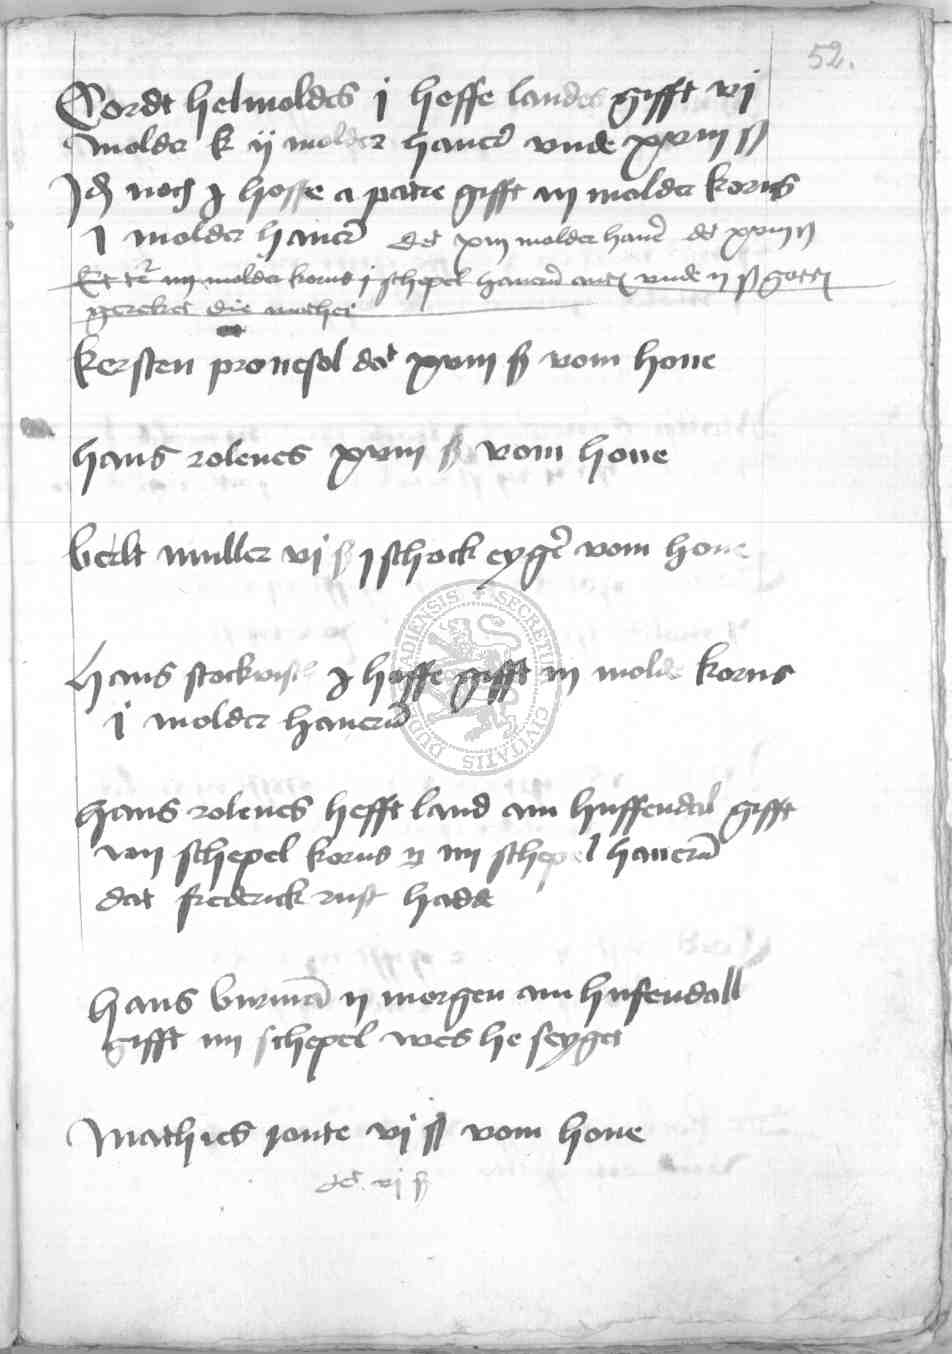 52.
Cordt helmoldes j hoffe landes gifft vj
molder k ij molder hauer vnde xviij ß
Jd noch j hoffe a patre gifft iij molder korns
j molder hauer dt xiij molder hauer dt xviij ß
iiij molder korns j schepel hauern vnde ij ß
gereket die mathei
kersten pronesol dat xviij ß vom houe
hans roleues xviij ß vom houe
berlt muller vj ß j schock eyger vom houe
hans stockwisch j hoffe gifft iij molder korns
j molder hauern
hans roleues hefft land am huffendal gifft
viij schepel korns iiij schepel hauern
dat frederick rust hadde
hans burman ij morgen am hufendall
gifft iiij schepel wes he seyget
Mathies jonte vj ß vom houe
dt vj ß
SECRETI CIVITATIS DUD